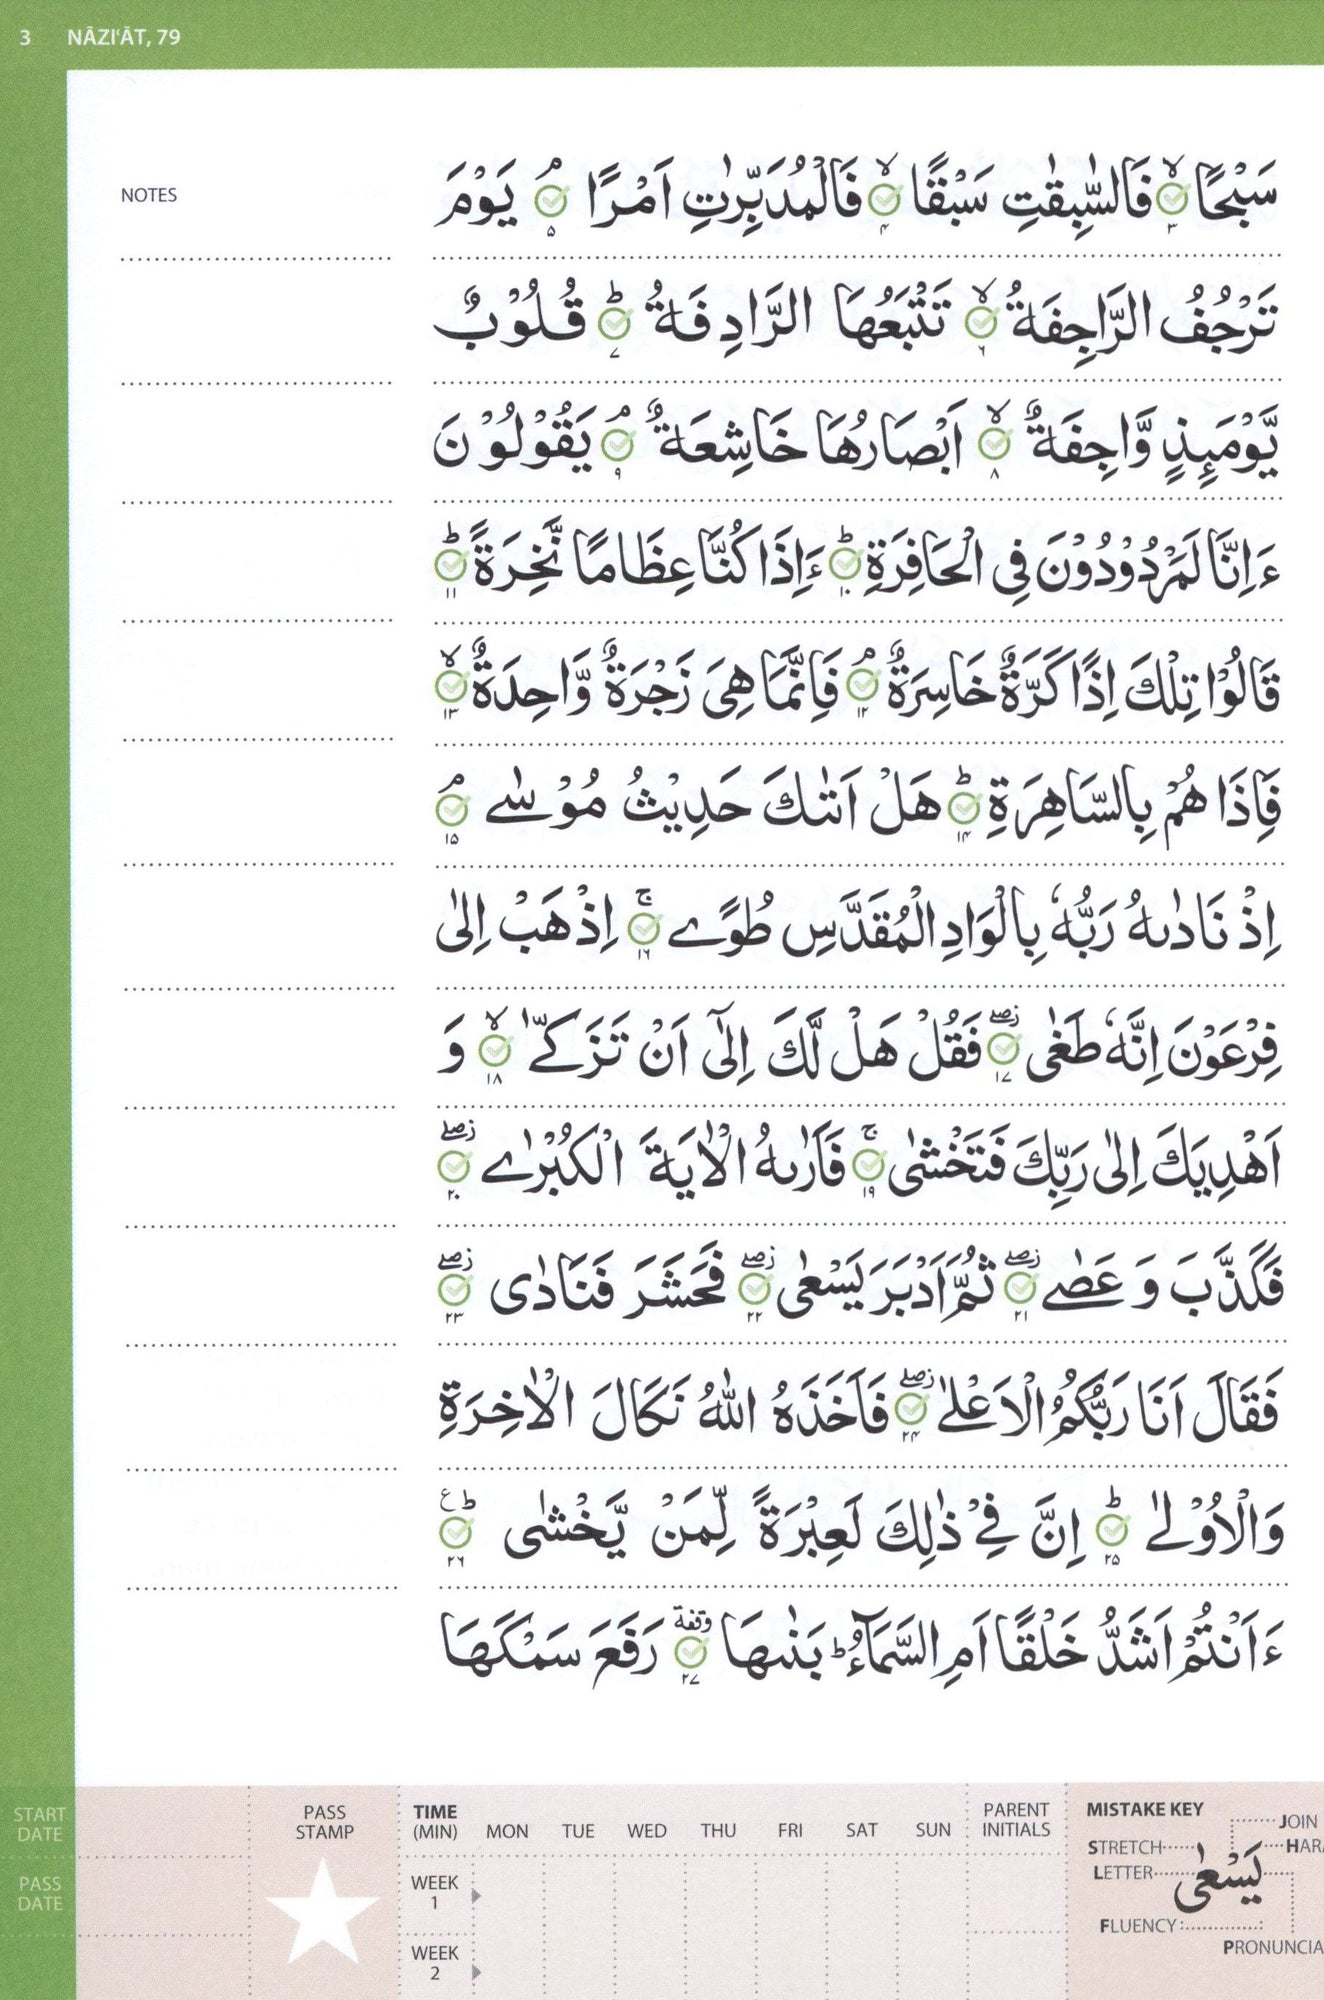 3 NĀZIʿĀT, 79
NOTES
سَبْحًا ۙ۳ فَالسّٰبِقٰتِ سَبْقًا ۙ۴ فَالْمُدَبِّرٰتِ اَمْرًا ۘ۵ يَوْمَ
تَرْجُفُ الرَّاجِفَةُ ۙ۶ تَتْبَعُهَا الرَّادِفَةُ ؕ۷ قُلُوْبٌ
يَّوْمَىِٕذٍ وَّاجِفَةٌ ۙ۸ اَبْصَارُهَا خَاشِعَةٌ ۘ۹ يَقُوْلُوْنَ
ءَاِنَّا لَمَرْدُوْدُوْنَ فِى الْحَافِرَةِ ؕ۱۰ ءَاِذَا كُنَّا عِظَامًا نَّخِرَةً ؕ۱۱
قَالُوْا تِلْكَ اِذًا كَرَّةٌ خَاسِرَةٌ ۘ۱۲ فَاِنَّمَا هِىَ زَجْرَةٌ وَّاحِدَةٌ ۙ۱۳
فَاِذَا هُمْ بِالسَّاهِرَةِ ؕ۱۴ هَلْ اَتٰىكَ حَدِيْثُ مُوْسٰے ۘ۱۵
اِذْ نَادٰىهُ رَبُّهٗ بِالْوَادِ الْمُقَدَّسِ طُوًے ۚ۱۶ اِذْهَبْ اِلٰى
فِرْعَوْنَ اِنَّهٗ طَغٰى زۖ۱۷ فَقُلْ هَلْ لَّكَ اِلٰٓى اَنْ تَزَكّٰے ۙ۱۸ وَ
اَهْدِيَكَ اِلٰى رَبِّكَ فَتَخْشٰى ۚ۱۹ فَاَرٰىهُ الْاٰيَةَ الْكُبْرٰے زۖ۲۰
فَكَذَّبَ وَ عَصٰے زۖ۲۱ ثُمَّ اَدْبَرَ يَسْعٰى زۖ۲۲ فَحَشَرَ فَنَادٰى زۖ۲۳
فَقَالَ اَنَا رَبُّكُمُ الْاَعْلٰے زۖ۲۴ فَاَخَذَهُ اللّٰهُ نَكَالَ الْاٰخِرَةِ
وَالْاُوْلٰے ؕ۲۵ اِنَّ فِىْ ذٰلِكَ لَعِبْرَةً لِّمَنْ يَّخْشٰى ؕع۲۶
ءَاَنْتُمْ اَشَدُّ خَلْقًا اَمِ السَّمَآءُ ؕ بَنٰىهَا وقفة۲۷ رَفَعَ سَمْكَهَا
START DATE
PASS DATE
PASS STAMP
TIME (MIN) MON TUE WED THU FRI SAT SUN PARENT INITIALS
WEEK 1
WEEK 2
MISTAKE KEY
JOIN
STRETCH
LETTER
يَسْعٰى
FLUENCY